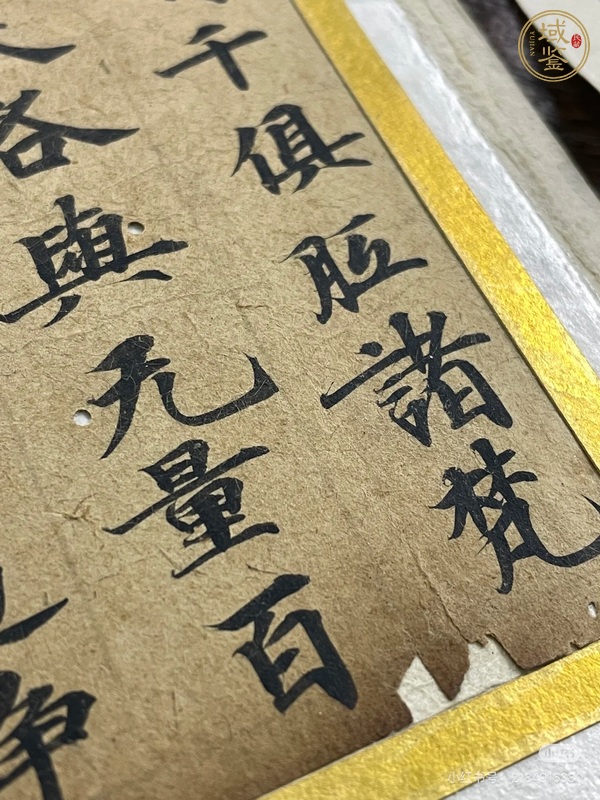 千俱胝諸梵
各與无量百
域鉴
YUJIAN